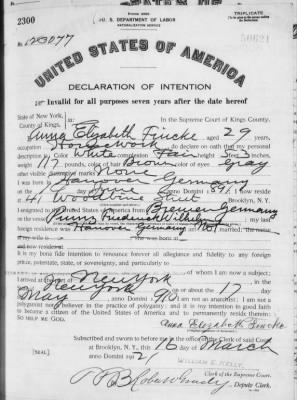 Form 2203
TRIPLICATE
2300
U. S. DEPARTMENT OF LABOR
NATURALIZATION SERVICE
No. 123077
UNITED STATES OF AMERICA
DECLARATION OF INTENTION
Invalid for all purposes seven years after the date hereof
State of New York,
County of Kings, ss:
In the Supreme Court of Kings County.
I, Anna Elizabeth Fincke, aged 29 years,
occupation Housework, do declare on oath that my personal
description is: Color White, complexion Fair, height 5 feet 3 inches,
weight 117 pounds, color of hair Brown, color of eyes Gray
other visible distinctive marks None
I was born in Hanover Germany
on the day of June, anno Domini 1891; I now reside
at 41 Woodbine Street, Brooklyn, N. Y.
I emigrated to the United States of America from Bremen Germany
on the vessel Prinz Friedrich Wilhelm; my last
foreign residence was Hanover Germany; I am not married; the name
of my is ; she was born at
and now resides at
It is my bona fide intention to renounce forever all allegiance and fidelity to any foreign
prince, potentate, state, or sovereignty, and particularly to
of whom I am now a subject;
I arrived at the port of New York, in the
State of New York, on or about the 17 day
of May, anno Domini 1910; I am not an anarchist; I am not a
polygamist nor a believer in the practice of polygamy; and it is my intention in good faith
to become a citizen of the United States of America and to permanently reside therein:
SO HELP ME GOD.
Anna Elizabeth Fincke
Subscribed and sworn to before me in the office of the Clerk of said Court
at Brooklyn, N. Y., this 16 day of March
anno Domini 1921
[SEAL]
WILLIAM E. KELLY
Clerk of the Supreme Court.
By
Deputy Clerk.